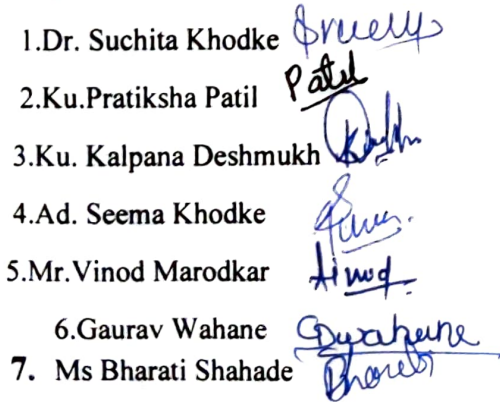 1.Dr. Suchita Khodke
2.Ku.Pratiksha Patil Patil
3.Ku. Kalpana Deshmukh
4.Ad. Seema Khodke
5.Mr.Vinod Marodkar
6.Gaurav Wahane GDwahane
7. Ms Bharati Shahade